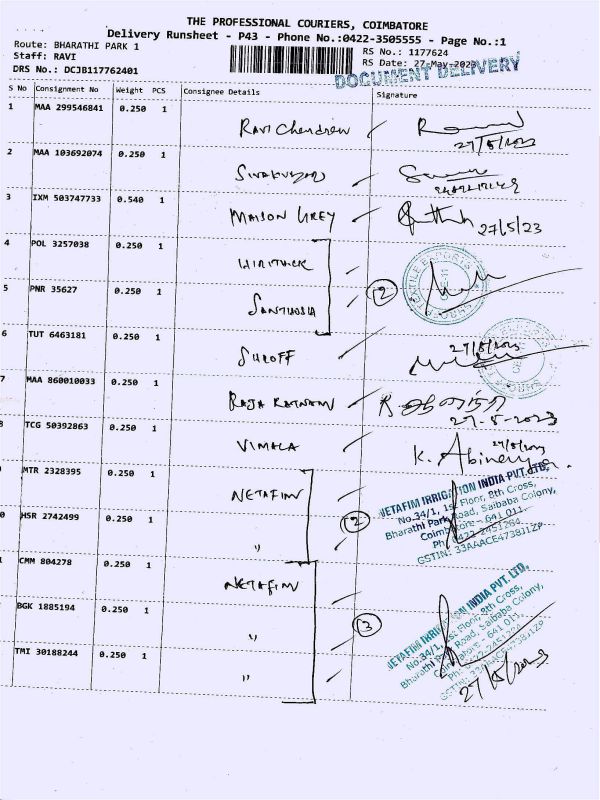 THE PROFESSIONAL COURIERS, COIMBATORE
Delivery Runsheet - P43 - Phone No.:0422-3505555 - Page No.:1
Route: BHARATHI PARK 1
Staff: RAVI
DRS No.: DCJB117762401
RS No.: 1177624
RS Date: 27-May-2023
DOCUMENT DELIVERY
S No Consignment No Weight PCS Consignee Details Signature
1 MAA 299546841 0.250 1 Ravi Chendren 27/5/2023
2 MAA 103692074 0.250 1
3 IXM 503747733 0.540 1 MAISON GREY 27/5/23
4 POL 3257038 0.250 1
5 PNR 35627 0.250 1 2
6 TUT 6463181 0.250 1 SHROFF 27/5/2023
7 MAA 860010033 0.250 1 RAJA RATNAM 27-5-2023
8 TCG 50392863 0.250 1 VIMALA K. Abinenya 27/5/2023
9 MTR 2328395 0.250 1 NETAFIM
0 HSR 2742499 0.250 1 " 2
NETAFIM IRRIGATION INDIA PVT.LTD,
No.34/1, 1st Floor, 8th Cross,
Bharathi Park Road, Saibaba Colony,
Coimbatore - 641 011.
GSTIN: 33AAACE4738J1ZP
1 CMM 804278 0.250 1 NETAFIM
BGK 1885194 0.250 1 " 3
TMI 30188244 0.250 1 "
NETAFIM IRRIGATION INDIA PVT. LTD,
No.34/1, 1st Floor, 8th Cross,
Bharathi Park Road, Saibaba Colony,
Coimbatore - 641 011.
GSTIN: 33AAACE4738J1ZP
27/5/2023